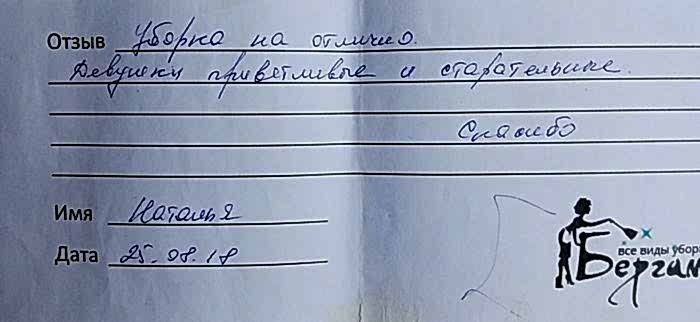 Отзыв Уборка на отлично.
Девушки приветливые и старательные.
Спасибо
Имя Наталья
Дата 25.08.18
все виды убор
Бергам